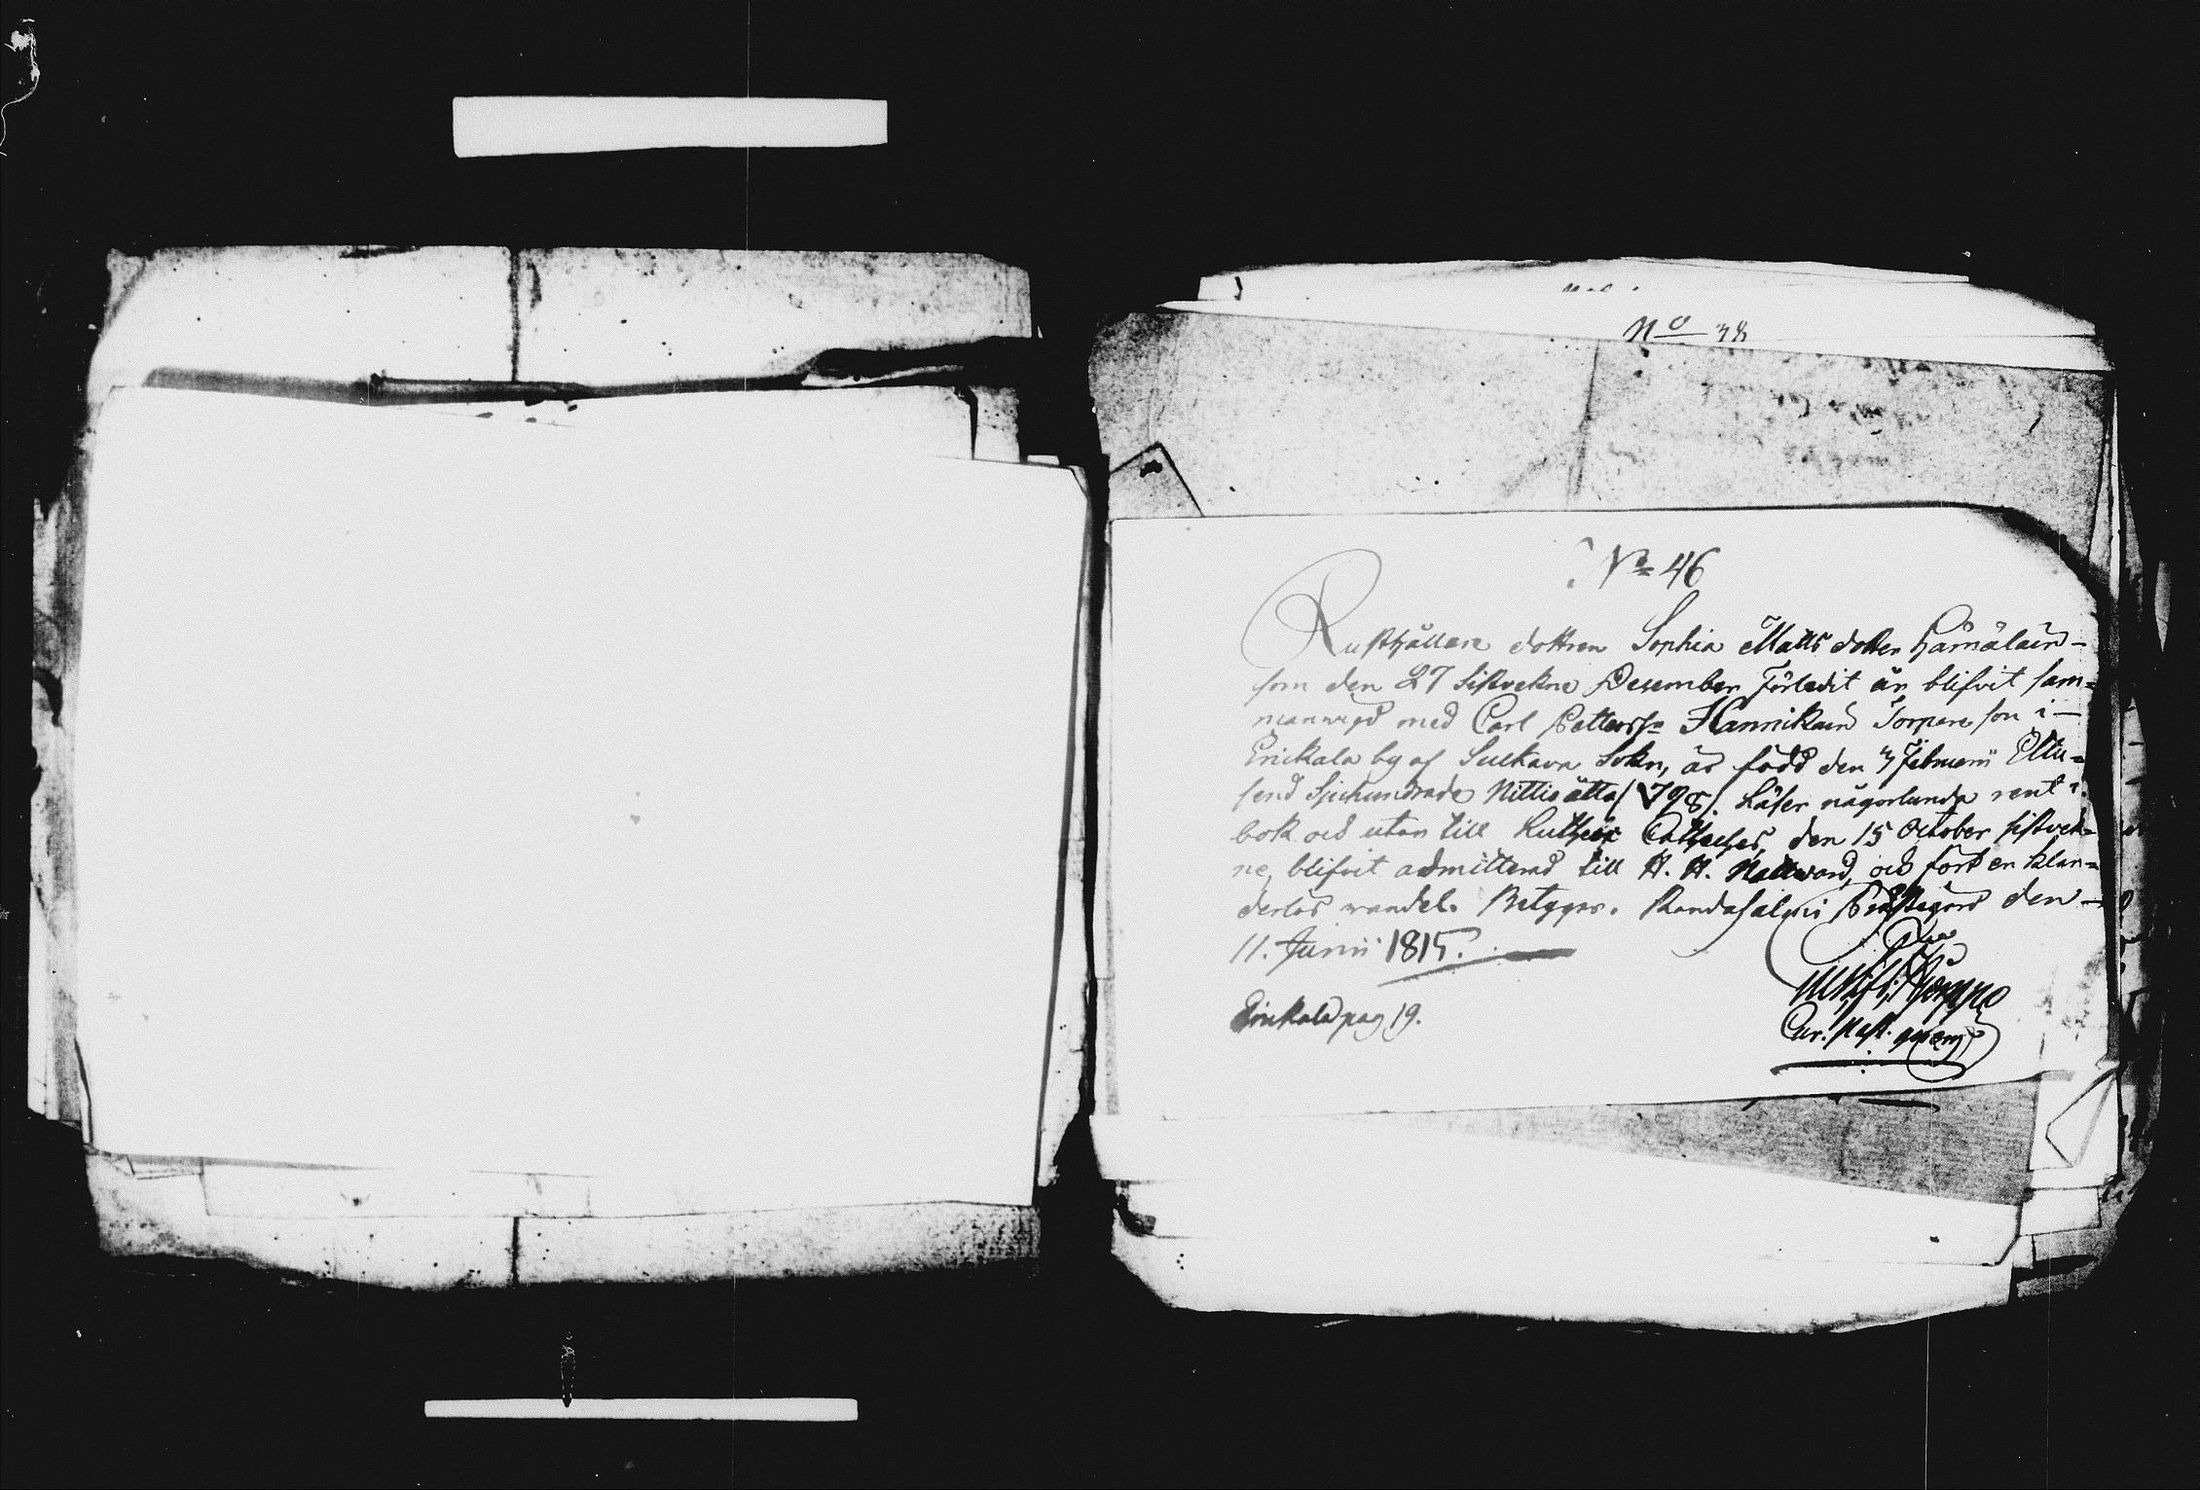 No 38
No 46
Rusthållare dottren Sophia Matts dotter Hämäläin
som den 27 sistvekne Desember Förledit år blifvit sam=
manvigd med Carl Petterss. Hannikain Torpare son i
Enikala by af Sulkava Sokn, är född den 7 Februarii Ettu=
send Sjuhundrade Nittio åtta /798/. Läser någorlunda rent i
bok och utan till Luthers Catheches, den 15 October sistvek=
ne, blifvit admitterad till H. H. Nattward, och fört en klan=
derlös wandel. Betygar. Randasalmi Prästegård den
11. Junii 1815.
Enikala pag 19.
Cur. Past.